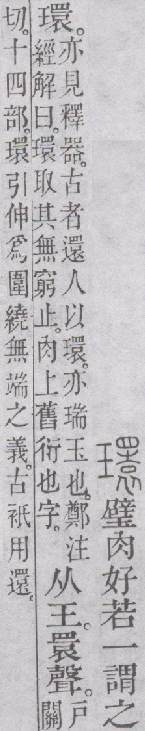 環璧肉好若一謂之
環。
亦見釋器。古者還人以環。亦瑞玉也。鄭注
經解曰。環取其無窮止。肉上舊衍也字。
从王。睘聲。
戶
關
切。十四部。環引伸爲圍繞無端之義。古衹用還。